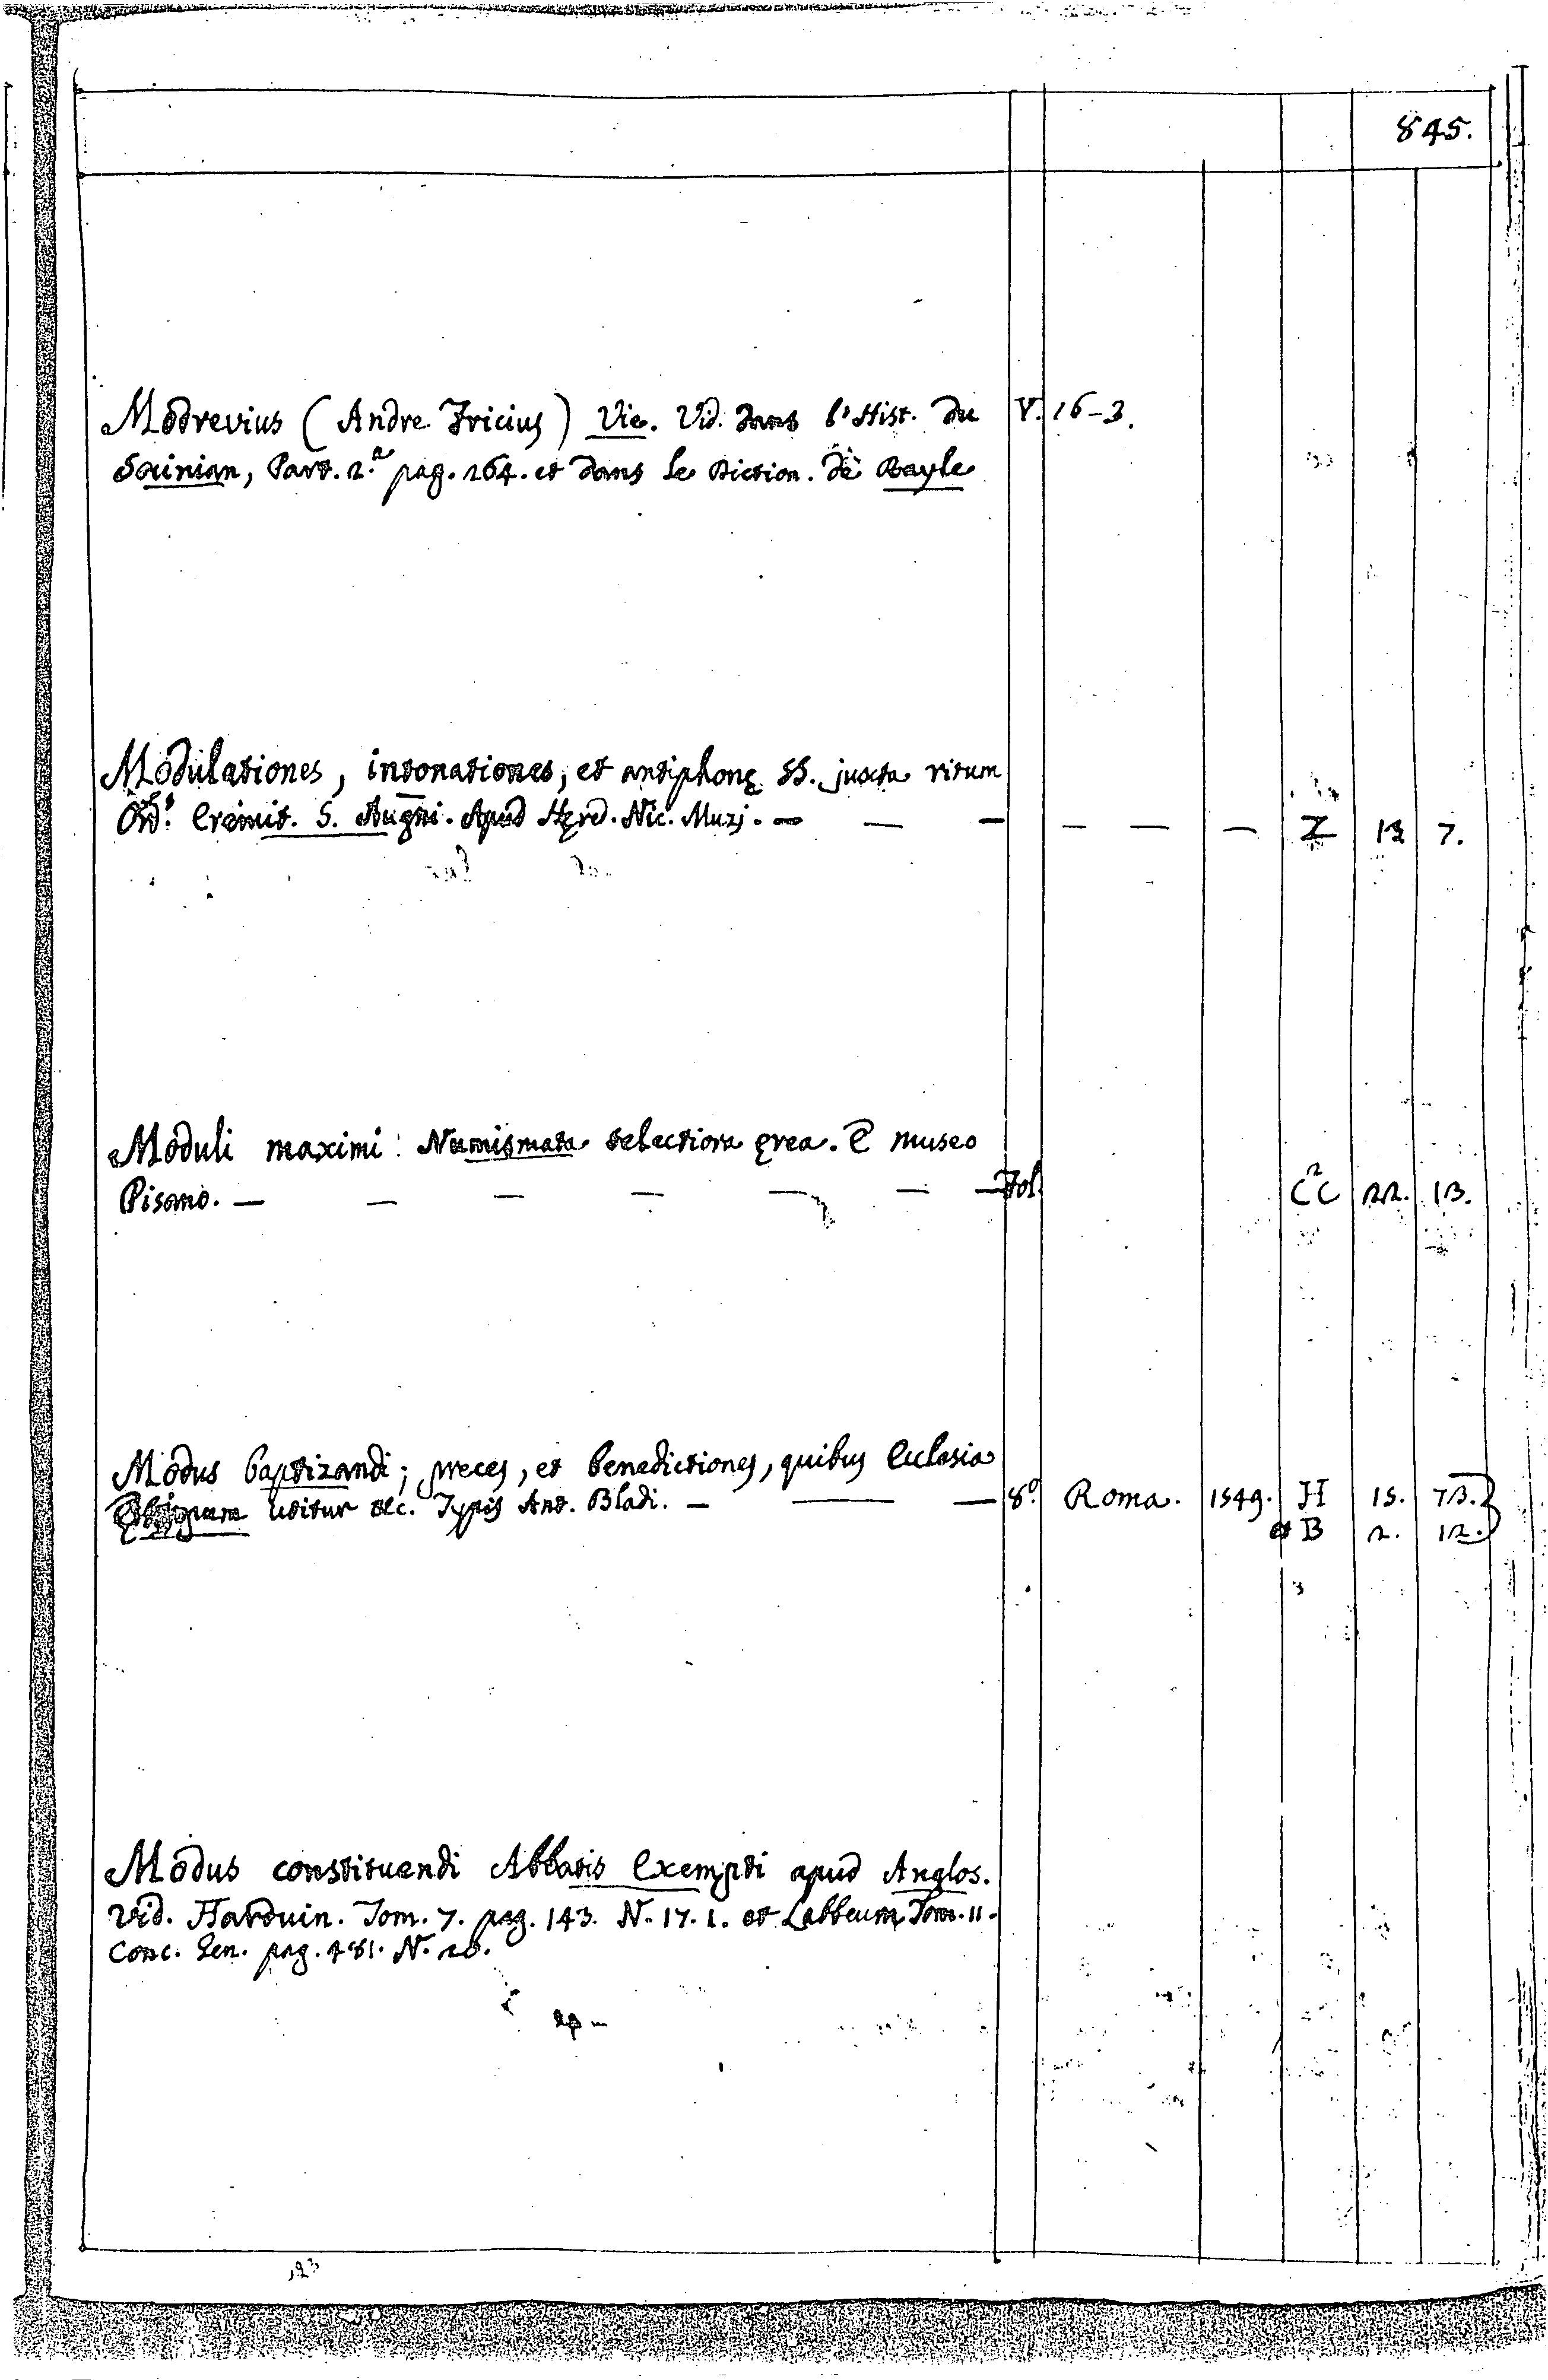 845.
Modrevius (Andre Fricius) Vie. Vid. dans l'Hist. du V. 16-3.
Socinian, Part. 2.a pag. 264. et dans le Diction. de Bayle
Modulationes, intonationes, et antiphonę SS. juxta ritum
Ord.s Eremit. S. Augni. Apud Hęred. Nic. Muzj. — — — — — — Z 13 7.
Moduli maximi: Numismata selectiora ęrea. E museo
Pisano. — — — — — — — Fol. CC 22. 13.
Modus baptizandi; preces, et benedictiones, quibus Ecclesia
utitur &c. Typis Ant. Bladi. — — — 8.o Roma. 1549. H 15. 73.
et B 2. 12.
Modus constituendi Abbatis Exempti apud Anglos.
Vid. Harduin. Tom. 7. pag. 143. N. 17. 1. et Labbeum Tom. 11.
Conc. Gen. pag. 481. N. 20.